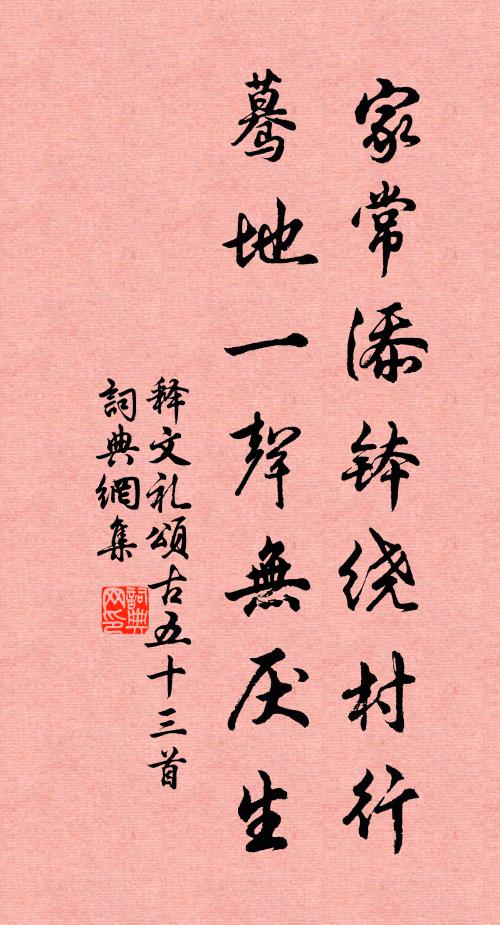 家常添鉢绕村行
蓦地一聲無厌生
释文礼頌古五十三首
詞典網集
詞典网印